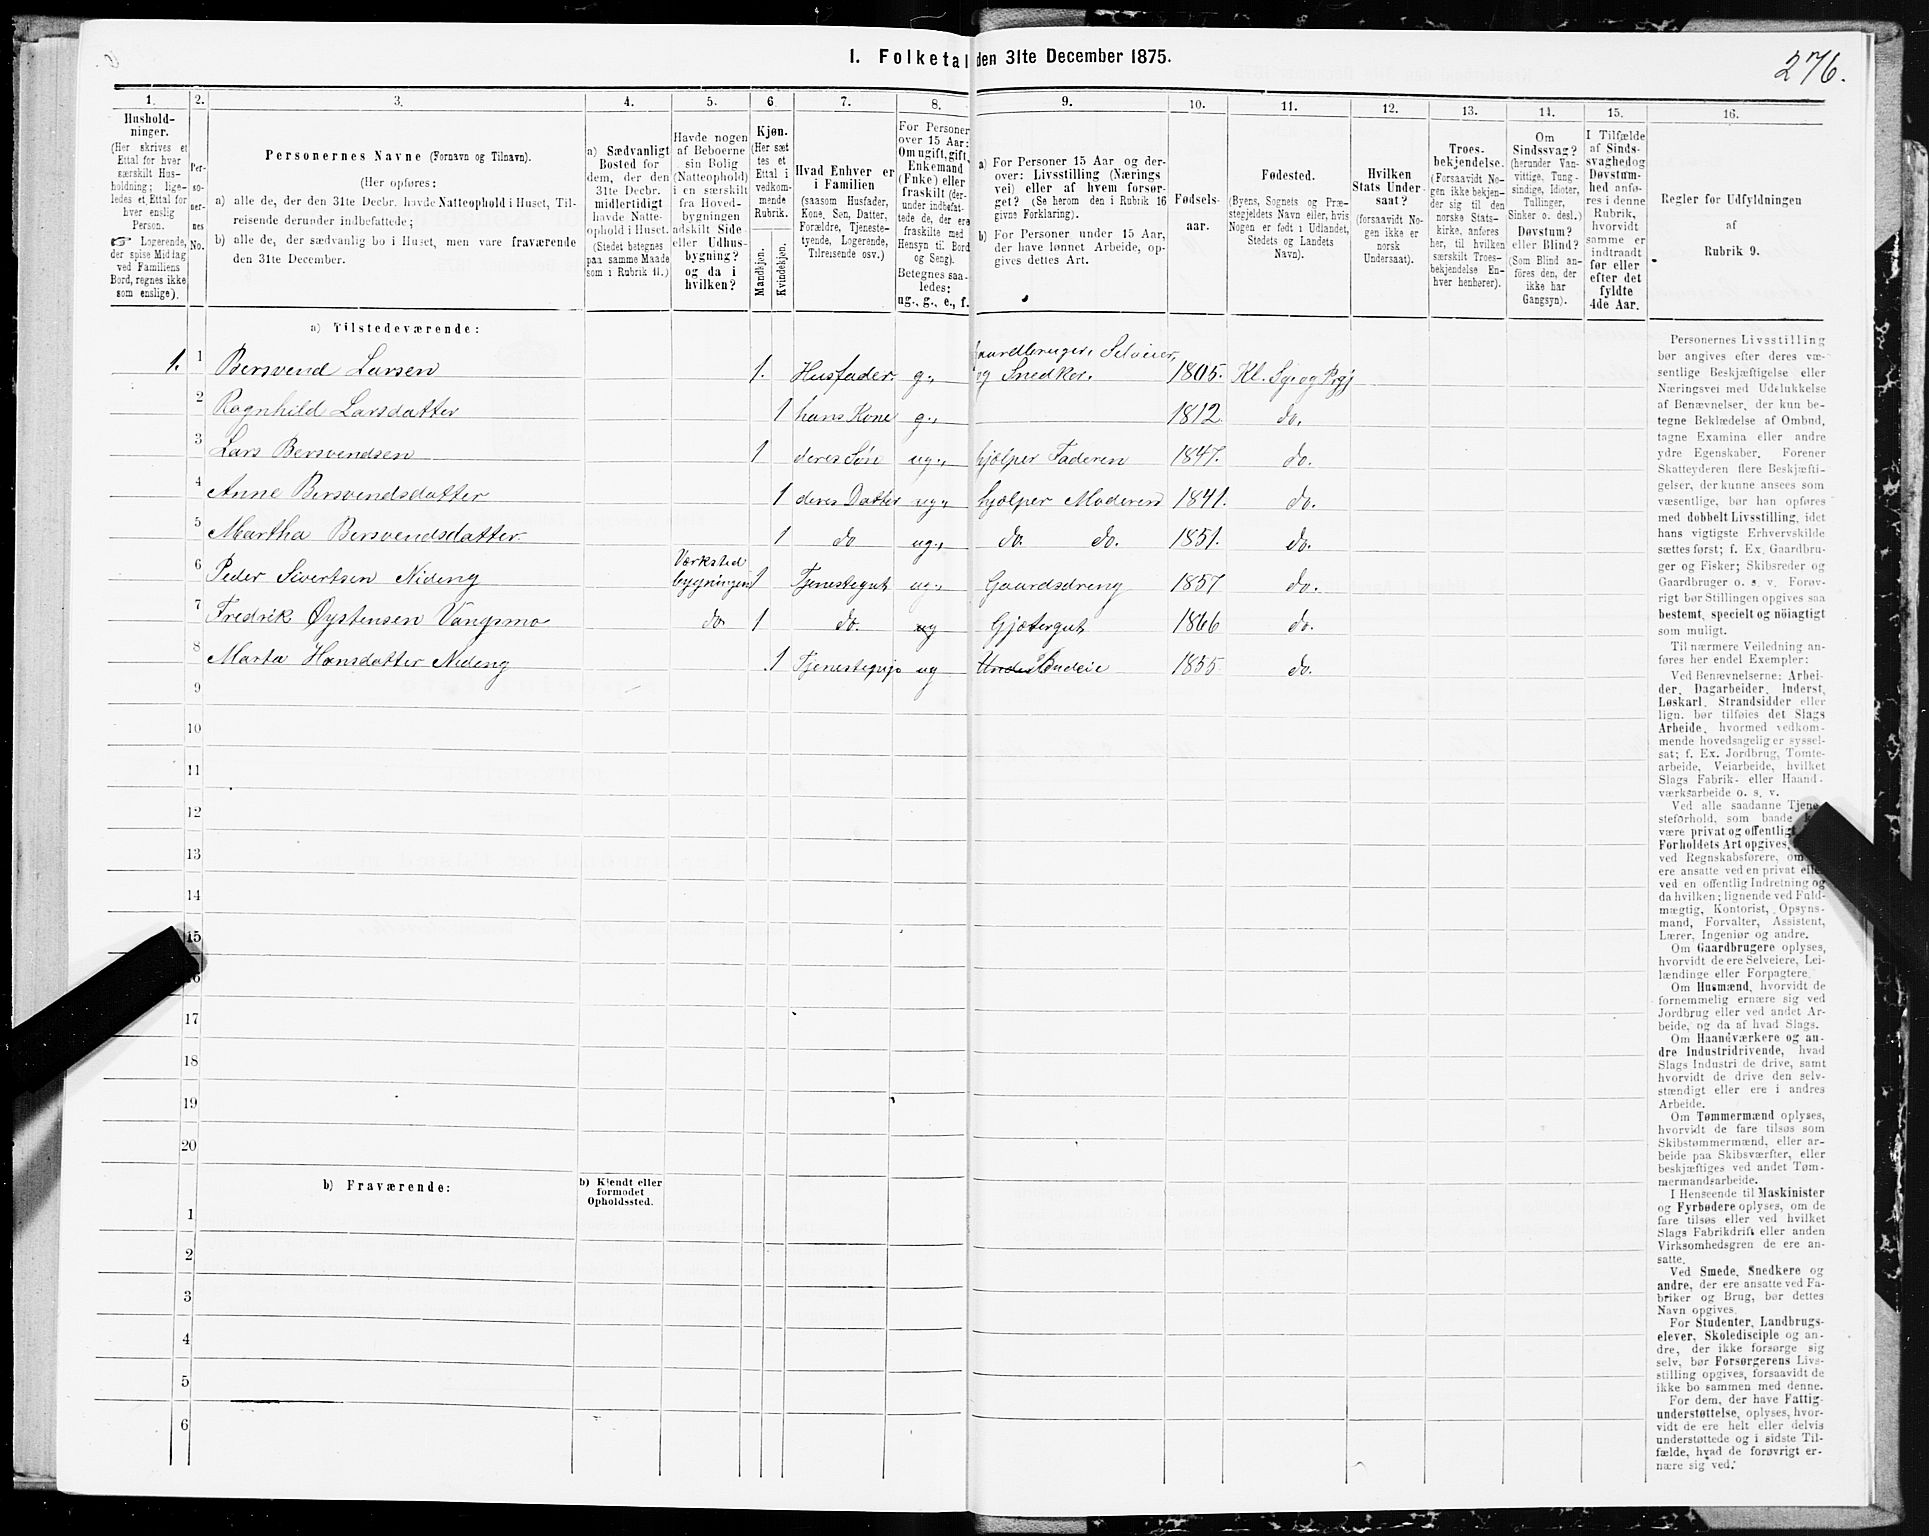 I. Folketal den 31te December 1875.
276.
1.
Husholdninger.
(Her skrives et Ettal for hver særskilt Husholdning; ligeledes et Ettal for hver enslig Person.
☞ Logerende, der spise Middag ved Familiens Bord, regnes ikke som enslige).
2.
Personernes No.
3.
Personernes Navne (Fornavn og Tilnavn).
(Her opføres:
a) alle de, der den 31te Decbr. havde Natteophold i Huset, Tilreisende derunder indbefattede;
b) alle de, der sædvanlig bo i Huset, men vare fraværende den 31te December.
4.
a) Sædvanligt Bosted for dem, der den 31te Decbr. midlertidigt havde Natteophold i Huset.
(Stedet betegnes paa samme Maade som i Rubrik 11.)
5.
Havde nogen af Beboerne sin Bolig (Natteophold) i en særskilt fra Hovedbygningen adskilt Side- eller Udhusbygning? og da i hvilken?
6.
Kjøn.
(Her sættes et Ettal i vedkommende Rubrik.
Mandkjøn.
Kvindekjøn.
7.
Hvad Enhver er i Familien
(saasom Husfader, Kone, Søn, Datter, Forældre, Tjenestetyende, Logerende, Tilreisende osv.)
8.
For Personer over 15 Aar: Om ugift, gift, Enkemand (Enke) eller fraskilt (derunder indbefattede de, der ere fraskilte med Hensyn til Bord og Seng).
Betegnes saaledes: ug., g., e., f.
9.
a) For Personer 15 Aar og derover: Livsstilling (Næringsvei) eller af hvem forsørget? (Se herom den i Rubrik 16 givne Forklaring).
b) For Personer under 15 Aar, der have lønnet Arbeide, opgives dettes Art.
10.
Fødselsaar.
11.
Fødested.
(Byens, Sognets og Præstegjeldets Navn eller, hvis Nogen er født i Udlandet, Stedets og Landets Navn).
12.
Hvilken Stats Undersaat?
(forsaavidt Nogen ikke er norsk Undersaat).
13.
Troesbekjendelse.
(Forsaavidt Nogen ikke bekjender sig til den norske Statskirke, anføres her, til hvilken særskilt Troesbekjendelse Enhver henhører).
14.
Om Sindssvag?
(herunder Vanvittige, Tungsindige, Idioter, Tullinger, Sinker o. desl.)
Døvstum? eller Blind?
(Som Blind anføres den, der ikke har Gangsyn).
15.
I Tilfælde af Sindssvaghed og Døvstumhed anføres i denne Rubrik, hvorvidt samme er indtraadt før eller efter det fyldte 4de Aar.
16.
Regler for Udfyldningen af Rubrik 9.
a) Tilstedeværende:
1. 1 Bersvend Larsen 1. Husfader. g., Gaardbruger, Selveier, og Snedker. 1805. Kl. S. og Prgj
2 Ragnhild Larsdatter 1 hans Kone g., 1812 do.
3 Lars Bersvendsen 1 deres Søn ug., hjælper Faderen 1847. do.
4 Anne Bersvendsdatter 1 deres Datter ug., hjælper Moderen 1841. do.
5 Martha Bersvendsdatter 1 do ug., do. do. 1851. do.
6 Peder Sivertsen Nideng Værkstedbygningen 1 Tjenestegut ug., Gaardsdreng 1857 do.
7 Fredrik Øystensen Vangsmo do 1 do. ug Gjætergut 1866 do.
8 Marta Hansdatter Nideng 1 Tjenestepige ug Budeie 1855. do.
9
10
11
12
13
14
15
16
17
18
19
20
b) Fraværende:
b) Kjendt eller formodet Opholdssted.
1
2
3
4
5
6
Personernes Livsstilling
bør angives efter deres væ-
sentlige Beskjæftigelse eller
Næringsvei med Udelukkelse
af Benævnelser, der kun be-
tegne Beklædelse af Ombud,
tagne Examina eller andre
ydre Egenskaber. Forener
Skatteyderen flere Beskjæfti-
gelser, der kunne ansees som
væsentlige, bør han opføres
med dobbelt Livsstilling, idet
hans vigtigste Erhvervskilde
sættes først; f. Ex. Gaardbru-
ger og Fisker; Skibsreder og
Gaardbruger o. s. v. Forøv-
rigt bør Stillingen opgives saa
bestemt, specielt og nöiagtigt
som muligt.
Til nærmere Veiledning an-
føres her endel Exempler:
Ved Benævnelserne: Arbei-
der, Dagarbeider, Inderst,
Løskarl, Strandsidder eller
lign. bør tilføies det Slags
Arbeide, hvormed vedkom-
mende hovedsagelig er syssel-
sat; f. Ex. Jordbrug, Tomte-
arbeide, Veiarbeide, hvilket
Slags Fabrik- eller Haand-
værksarbeide o. s. v.
Ved alle saadanne Tjene-
steforhold, som baade
være privat og offentligt,
Forholdets Art opgives,
ved Regnskabsførere, om
ere ansatte ved en privat
ved en offentlig Indretning og
da hvilken; lignende ved Fuld-
mægtig, Kontorist, Opsyns-
mand, Forvalter, Assistent,
Lærer, Ingeniør og andre.
Om Gaardbrugere oplyses,
hvorvidt de ere Selveiere, Lei-
lændinge eller Forpagtere.
Om Husmænd, hvorvidt de
fornemmelig ernære sig ved
Jordbrug eller ved andet Ar-
beide, og da af hvad Slags.
Om Haandværkere og an-
dre Industridrivende, hvad
Slags Industri de drive, samt
hvorvidt de drive den selv-
stændigt eller ere i andres
Arbeide.
Om Tømmermænd oplyses,
hvorvidt de fare tilsøs som
Skibstømmermænd, eller ar-
beide paa Skibsværfter, eller
beskjæftiges ved andet Tøm-
mermandsarbeide.
I Henseende til Maskinister
og Fyrbødere oplyses, om de
fare tilsøs eller ved hvilket
Slags Fabrikdrift eller anden
Virksomhedsgren de ere an-
satte.
Ved Smede, Snedkere og
andre, der ere ansatte ved Fa-
briker og Brug, bør dettes
Navn opgives.
For Studenter, Landbrugs-
elever, Skoledisciple og an-
dre, der ikke forsørge sig
selv, bør Forsørgerens Livs-
stilling opgives, forsaavidt de
ikke bo sammen med denne.
For dem, der have Fattig-
understøttelse, oplyses, hvor-
vidt de ere helt eller delvis
understøttede og i sidste Til-
fælde, hvad de forøvrigt er-
nære sig ved.